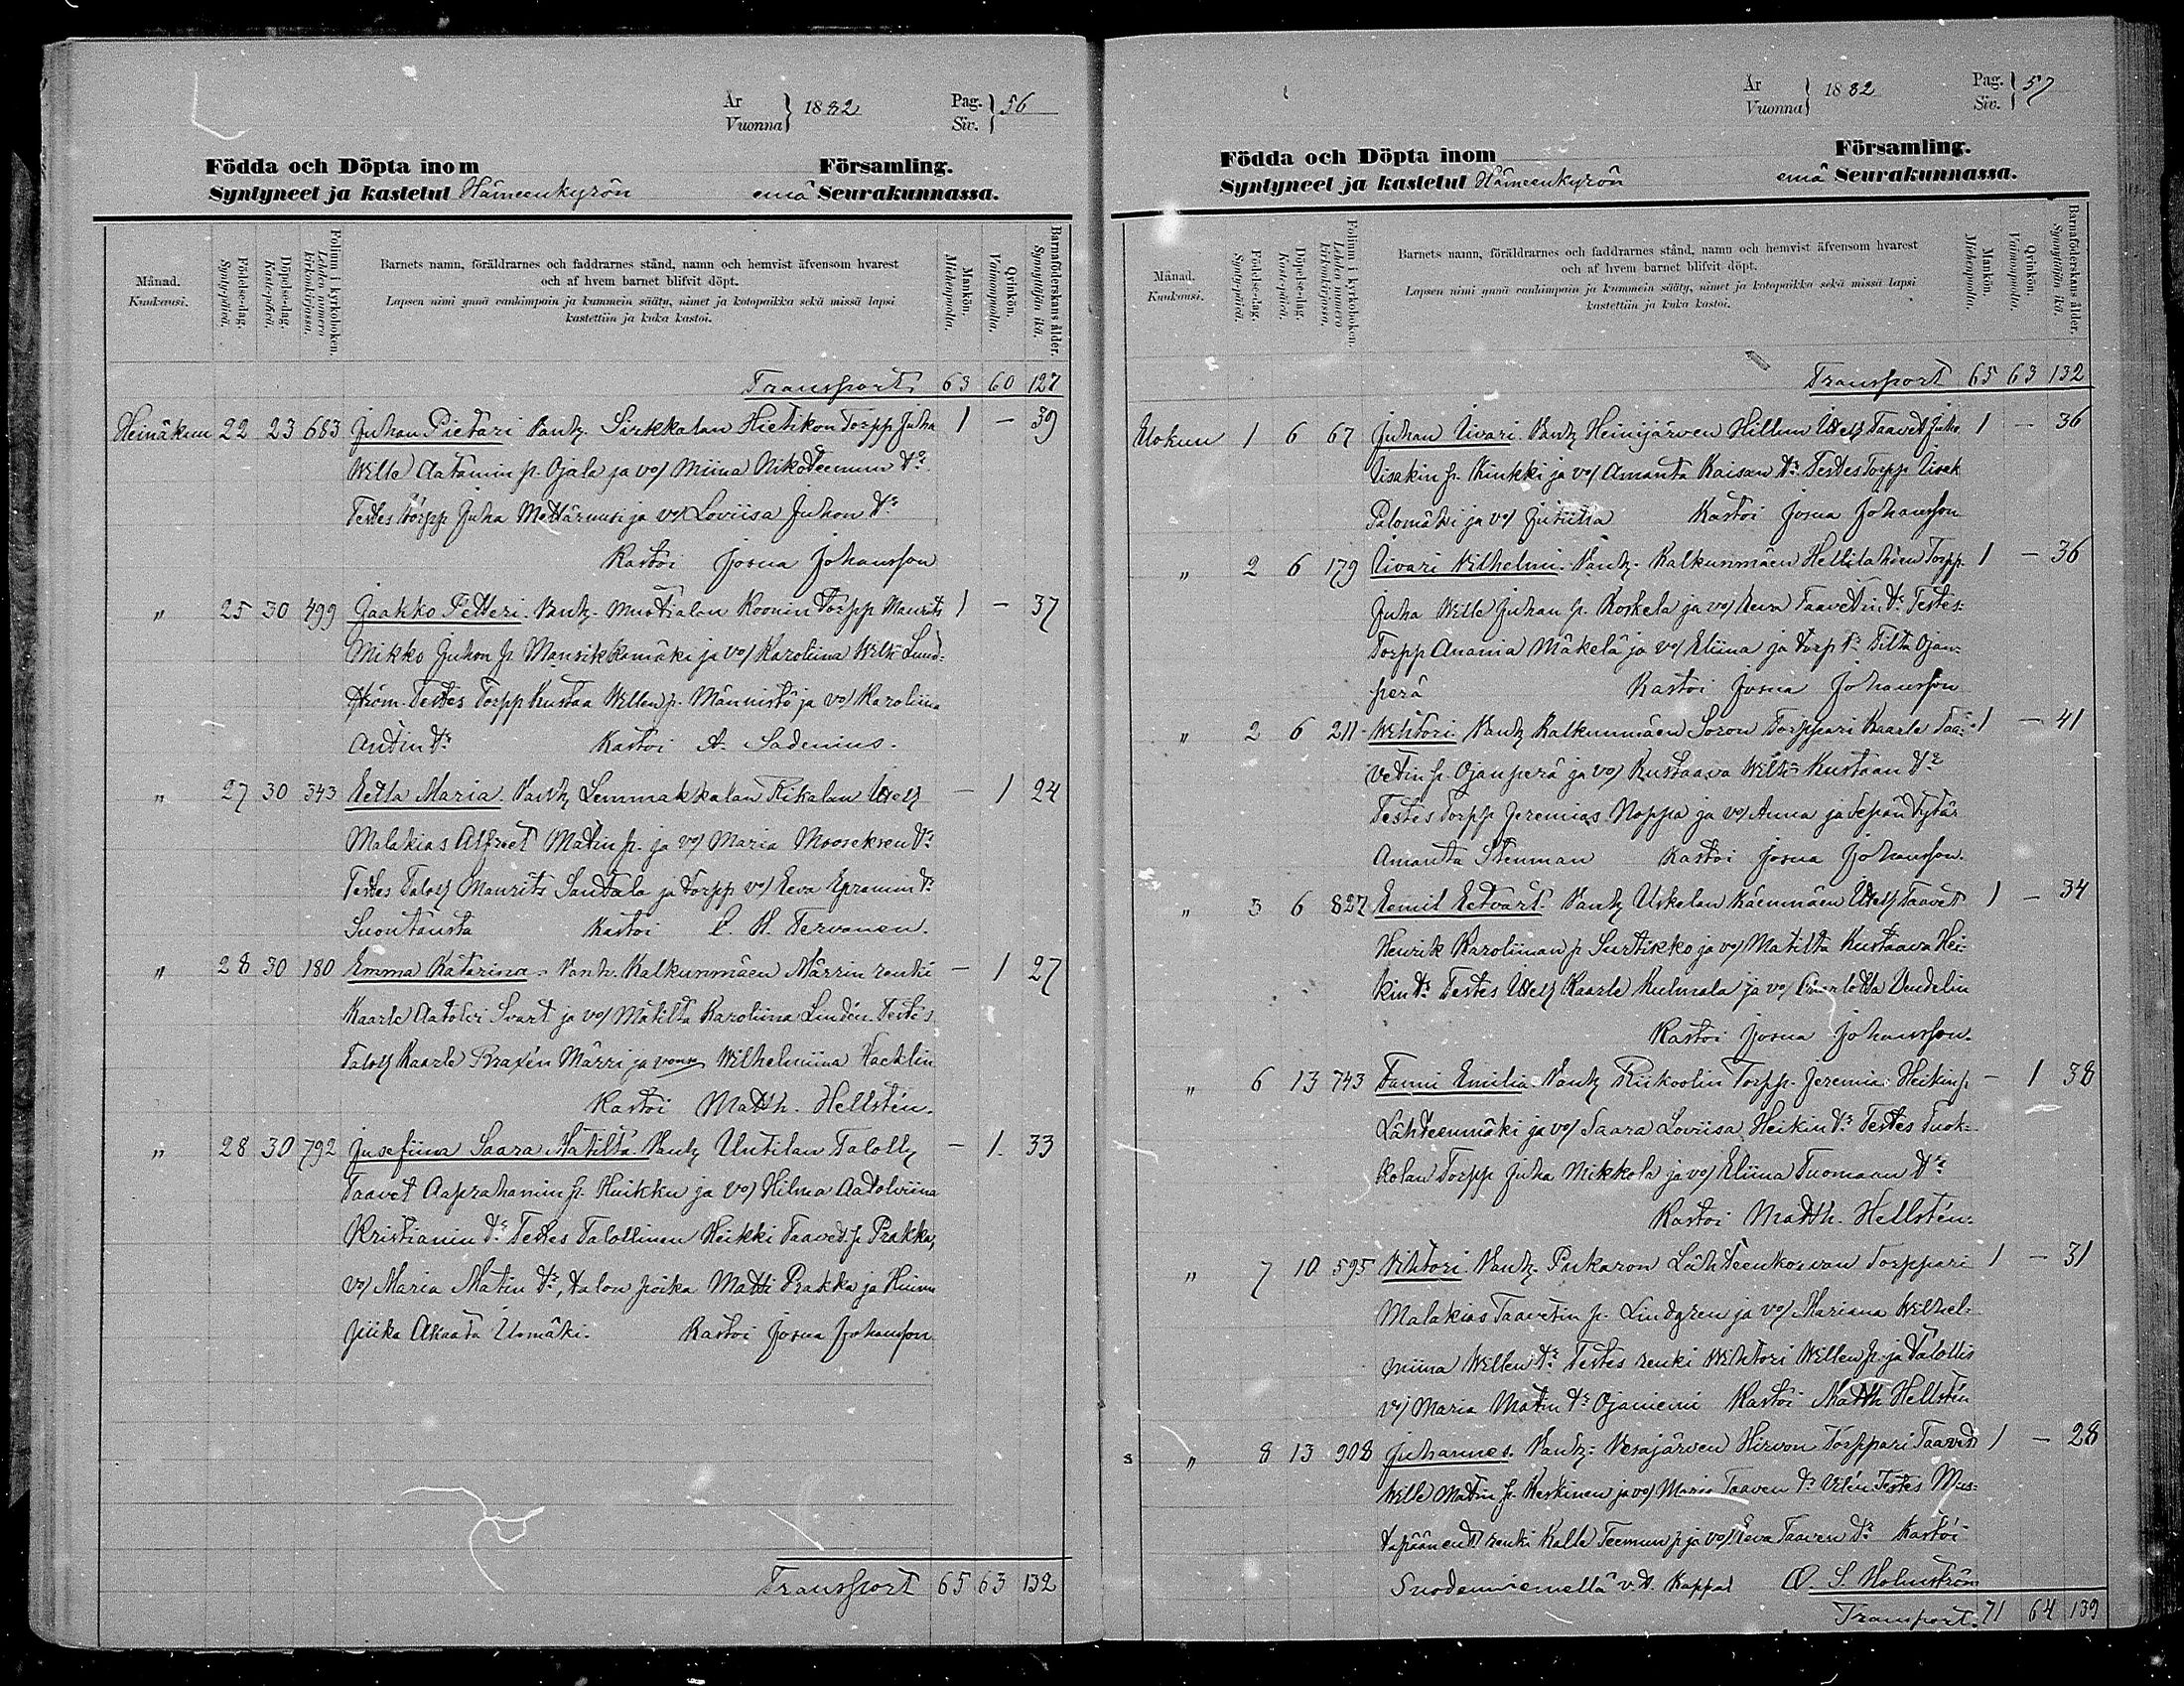 År
Vuonna } 1882
Pag.
Siv. } 56
Födda och Döpta inom Församling.
Syntyneet ja kastetut Hämeenkyrön emä Seurakunnassa.
Månad.
Kuukausi.
Födelse-dag.
Syntypäivä.
Döpelse-dag.
Kaste-päivä.
Folium i kyrkoboken.
Lehden numero kirkonkirjassa.
Barnets namn, föräldrarnes och faddrarnes stånd, namn och hemvist äfvensom hvarest
och af hvem barnet blifvit döpt.
Lapsen nimi ynnä vanhimpain ja kummein sääty, nimet ja kotopaikka sekä missä lapsi
kastettiin ja kuka kastoi.
Mankön.
Miehenpuolia.
Qvinkön.
Vaimonpuolia.
Barnaföderskans ålder.
Synnyttäjän ikä.
Transport 63 60 127
Heinäkuu 22 23 683 Juhan Pietari Vanh. Sirkkalan Hietikon Torpp Juha 1 – 39
Wille Aatamin p. Ojala ja vo/ Miina Nikoteemun tr
Testes torpp Juha Mettäruusi ja vo/ Loviisa Juhon tr
Kastoi Josua Johansson
" 25 30 499 Jaakko Petteri. Vanh. Mustialan Koonin Torpp Maurits 1 – 37
Mikko Juhon p. Maurikkamäki ja vo/ Karoliina Welh Lund-
ström. Testes Torpp Kustaa Willen p. Männistö ja vo/ Karoliina
Antin tr Kastoi A. Sadenius.
" 27 30 343 Eetla Maria. Vanh. Lemmakkalan Rikalan Itsell – 1 24
Malakias Alfreet Matin p. ja vo/ Maria Mooseksen tr
Testes Taloll Maurits Santala ja torpp vo/ Eeva Epramin tr
Suontausta Kastoi C. H. Tervonen.
" 28 30 180 Emma Katarina. Vanh. Kalkunmäen Märrin renki – 1 27
Kaarle Aatolvi Svart ja vo/ Matilta Karoliina Lindén. Testes
Taloll Kaarle Braxén Märri ja vaimo Wilhelmiina Hacklin
Kastoi Matth. Hellstén.
" 28 30 792 Jusefiina Saara Matilta. Vanh. Uutilan Talolln – 1. 33
Taavet Aaprahamin p. Huikku ja vo/ Hilma Aatolviina
Kristianin tr Testes Talollinen Heikki Taavet. p. Prakka,
vo/ Maria Matin tr, talon poika Matti Prakka ja
piika Akaata Uomäki. Kastoi Josua Johansson
Transport 65 63 132
År
Vuonna } 1882
Pag.
Siv. } 57
Födda och Döpta inom Församling.
Syntyneet ja kastetut Hämeenkyrön emä Seurakunnassa.
Månad.
Kuukausi.
Födelse-dag.
Syntypäivä.
Döpelse-dag.
Kaste-päivä.
Folium i kyrkoboken.
Lehden numero kirkonkirjassa.
Barnets namn, föräldrarnes och faddrarnes stånd, namn och hemvist äfvensom hvarest
och af hvem barnet blifvit döpt.
Lapsen nimi ynnä vanhimpain ja kummein sääty, nimet ja kotopaikka sekä missä lapsi
kastettiin ja kuka kastoi.
Mankön.
Miehenpuolia.
Qvinkön.
Vaimonpuolia.
Barnaföderskans ålder.
Synnyttäjän ikä.
Transport 65 63 132
Elokuu 1 6 67 Juhan Iivari. Vanh Heinijärven Hillun Itsell Taavet Juha 1 – 36
Iisakin p. Kinkki ja vo/ Amanta Kaisan tr. Testes Torpp Iisak
Palomäki ja vo/ Jutiitha Kastoi Josua Johansson
" 2 6 179 Iivari Wilhelmi. Vanh. Kalkunmäen Hellilahden Torpp. 1 – 36
Juha Wille Juhan p. Koskela ja vo/ Eeva Taavetin tr. Testes:
Torpp Anania Mäkelä ja vo/ Eliina ja torp tr. Tilta Ojan-
perä Kastoi Josua Johansson
" 2 6 211 Wihtori Vanh Kalkunmäen Soron Torppari Kaarle Taa- 1 – 41
vetin p. Ojanperä ja vo/ Kustaava Wilh. Kustaan tr
Testes Torpp Jeremias Noppa ja vo/ Anna ja sepän tytär
Amanta Stenman Kastoi Josua Johansson.
" 3 6 827 Eemil Eetvart. Vanh Uskelan Käenmäen Itsell Taavet 1 – 34
Henrik Karoliinan p Surtikko ja vo/ Matilta Kustaava Hei-
kin tr Testes Itsell Kaarle Kulmala ja vo/ Charlotta Vendelin
Kastoi Josua Johansson.
" 6 13 743 Fanni Emilia Vanh Riikoolin Torpp. Jeremia Heikin p – 1 38
Lähteenmäki ja vo/ Saara Loviisa Heikin tr Testes Tuok-
kolan Torpp Juha Mikkola ja vo/ Eliina Tuomaan tr
Kastoi Matth. Hellstén.
" 7 10 595 Vihtori. Vanh. Pukaron Lähteenkorvan Torppari 1 – 31
Malakias Taavetin p. Lindgren ja vo/ Mariana Wilhel-
miina Willen tr. Testes renki Wihtori Willen p. ja Talollis
vo/ Maria Matin tr Ojaniemi Kastoi Matth Hellstén
s " 8 13 908 Juhannes. Vanh: Vesajärven Hirvon Torppari Taavet 1 – 28
Wille Matin p. Keskinen ja vo/ Maria Taaven tr Vilén Testes Mus-
tapään renki Kalle Teemun p ja vo/ Eeva Taaven tr Kastoi
Suodenniemellä v.t. Kappal O. S. Holmström
Transport. 71 64 139